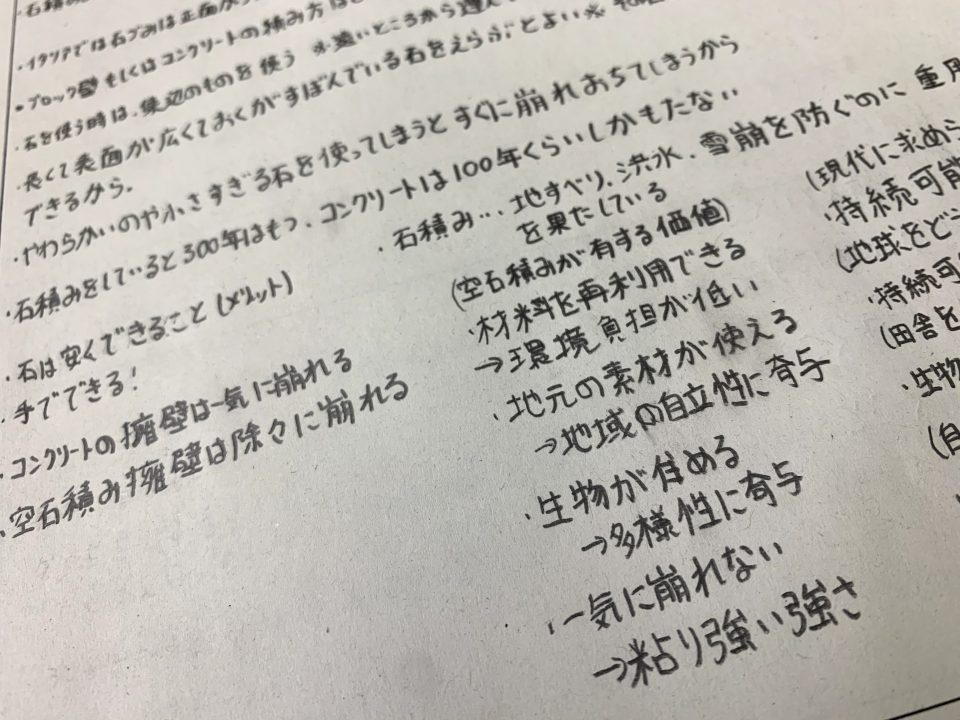 ・石積み
・イタリアでは石づみは正面から
・ブロック塀もしくはコンクリートの積み方は
・石を使う時は、集辺のものを使う ※遠いところから運ん
・長くて表面が広くておくがすぼんでいる石をえらぶとよい※
できるから、
・やわらかいのや小さすぎる石を使ってしまうとすぐに崩れおちてしまうから
・石積みをしていると300年はもつ、コンクリートは100年くらいしかもたない
・石は安くできること(メリット)
・手でできる!
・コンクリートの擁壁は一気に崩れる
・空石積み擁壁は除々に崩れる
・石積み…地すべり、洪水、雪崩を防ぐのに重
を果たしている
(空石積みが有する価値)
・材料を再利用できる
→環境負担が低い
・地元の素材が使える
→地域の自立性に寄与
・生物が住める
→多様性に寄与
・一気に崩れない
→粘り強い強さ
(現代に求めら
・持続可能
(地球をど
・持続可
(田舎を
・生物
(自